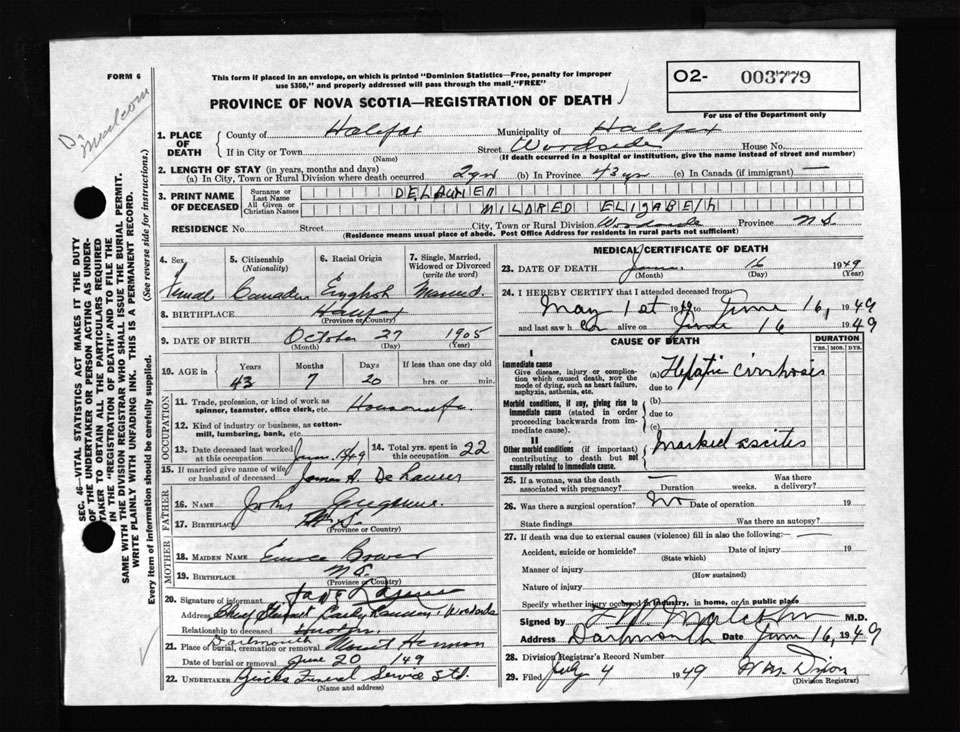 FORM 6
This form if placed in an envelope, on which is printed "Dominion Statistics—Free, penalty for improper
use $300," and properly addressed will pass through the mail "FREE"
O2- 003779
For use of the Department only
PROVINCE OF NOVA SCOTIA—REGISTRATION OF DEATH
Dr Malcolm
SEC. 46—VITAL STATISTICS ACT MAKES IT THE DUTY
OF THE UNDERTAKER OR PERSON ACTING AS UNDER-
TAKER TO OBTAIN ALL THE PARTICULARS REQUIRED
IN THE "REGISTRATION OF DEATH" AND TO FILE THE
SAME WITH THE DIVISION REGISTRAR WHO SHALL ISSUE THE BURIAL PERMIT.
WRITE PLAINLY WITH UNFADING INK. THIS IS A PERMANENT RECORD.
Every item of information should be carefully supplied. (See reverse side for instructions.)
1. PLACE OF DEATH County of Halifax Municipality of Halifax
If in City or Town (Name) Street Woodside House No.
(If death occurred in a hospital or institution, give the name instead of street and number)
2. LENGTH OF STAY (in years, months and days)
(a) In City, Town or Rural Division where death occurred 2 yrs (b) In Province 43 yrs (c) In Canada (if immigrant) —
3. PRINT NAME OF DECEASED
Surname or Last Name
All Given or Christian Names MILDRED ELIZABETH
RESIDENCE No. Street City, Town or Rural Division Woodside Province N.S.
(Residence means usual place of abode. Post Office Address for residents in rural parts not sufficient)
4. Sex Female
5. Citizenship (Nationality) Canadian
6. Racial Origin English
7. Single, Married, Widowed or Divorced (write the word) Married.
8. BIRTHPLACE Halifax
(Province or Country)
9. DATE OF BIRTH October 27 1905
(Month) (Day) (Year)
10. AGE in Years 43 Months 7 Days 20 If less than one day old hrs. or min.
OCCUPATION
11. Trade, profession, or kind of work as spinner, teamster, office clerk, etc. Housewife.
12. Kind of industry or business, as cotton-mill, lumbering, bank, etc.
13. Date deceased last worked at this occupation June 1949
14. Total yrs. spent in this occupation 22
15. If married give name of wife or husband of deceased James A.
FATHER
16. NAME John
17. BIRTHPLACE N.S.
(Province or Country)
MOTHER
18. MAIDEN NAME Eunice
19. BIRTHPLACE N.S.
(Province or Country)
20. Signature of informant
Address Woodside
Relationship to deceased
21. Place of burial, cremation or removal Dartmouth Mount Hermon
Date of burial or removal June 20 /49
22. UNDERTAKER Funeral Service Ltd.
(Name and address)
MEDICAL CERTIFICATE OF DEATH
23. DATE OF DEATH June 16 1949
(Month) (Day) (Year)
24. I HEREBY CERTIFY that I attended deceased from:
May 1st 1949 to June 16, 1949
and last saw her alive on June 16 1949
CAUSE OF DEATH
DURATION
YRS. MOS. DYS.
I
Immediate cause
Give disease, injury or complication which caused death, not the mode of dying, such as heart failure, asphyxia, asthenia, etc.
(a) Hepatic cirrhosis
due to
Morbid conditions, if any, giving rise to immediate cause (stated in order proceeding backwards from immediate cause).
(b)
due to
(c)
II
Other morbid conditions (if important) contributing to death but not causally related to immediate cause.
Marked ascites
25. If a woman, was the death associated with pregnancy? — Duration weeks. Was there a delivery?
26. Was there a surgical operation? No Date of operation 19
State findings Was there an autopsy?
27. If death was due to external causes (violence) fill in also the following:— —
Accident, suicide or homicide? Date of injury 19
(State which)
Manner of injury
(How sustained)
Nature of injury
Specify whether injury occurred in industry, in home, or in public place
Signed by Malcolm M.D.
Address Dartmouth Date June 16, 1949
28. Division Registrar's Record Number
29. Filed July 4 1949 Wm. Dixon
(Division Registrar)